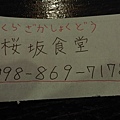 くらさかしょくどう
桜坂食堂
098-869-7178